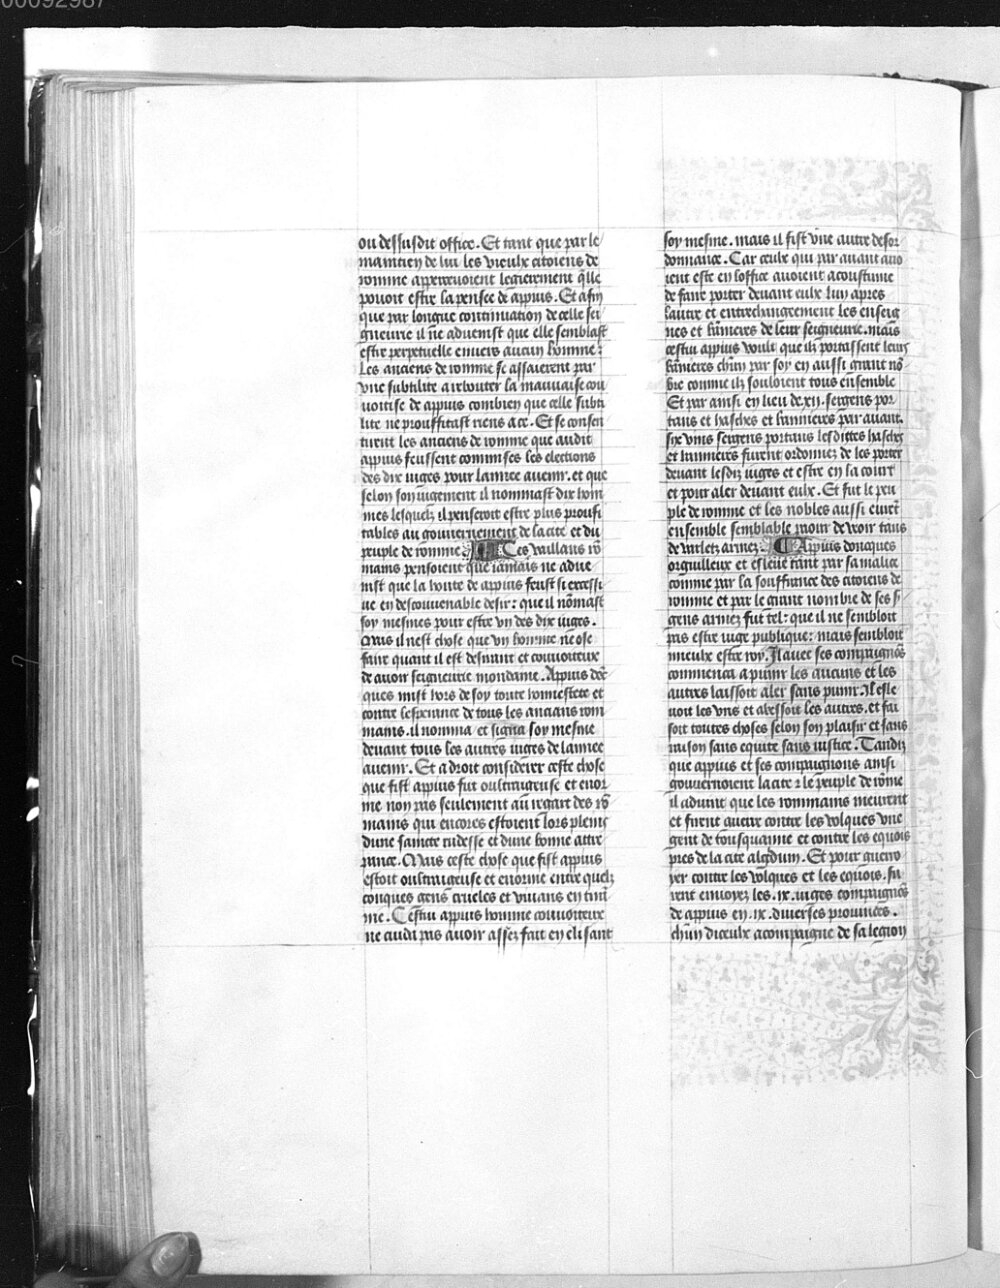 00092987
ou dessusdit office. Et tant que par le
maintien de lui les vieulx citoiens de
romme apperceuoient legierement q̄lle
pouoit estre la pensee de appius. Et afin
que par longue continuation de celle sei
gneurie il ne aduenist que elle semblast
estre perpetuelle enuers aucun homme:
Les anciens de romme se assaierent par
vne subtilite a rebouter la mauuaise cou
uoitise de appius combien que celle subti
lite ne prouffitast riens a ce. Et se consen
tirent les anciens de romme que audit
appius feussent commises les elections
des dix iuges pour lannee auenir. et que
selon son iugement il nommast dix hom
mes lesquelz il penseroit estre plus proufi
tables au gouuernement de la cite et du
peuple de romme. Ces vaillans rō
mains pensoient que iamais ne adue
nist que la honte de appius feust si excessi
ue en descouuenable desir: que il nōmast
soy mesmes pour estre vn des dix iuges.
Mais il nest chose que vn homme ne ose
faire quant il est desirant et couuoiteux
de auoir seigneurie mondaine. Appius dōc
ques mist hors de soy toute honnestete et
contre lesperance de tous les ancians rom
mains. il nomma et signa soy mesme
deuant tous les autres iuges de lannee
auenir. Et a droit considerer ceste chose
que fist appius fut oultrageuse et enor
me non pas seulement au regart des rō
mains qui encores estoient lors pleins
dune saincte rudesse et dune bonne attre
pance. Mais ceste chose que fist appius
estoit oultrageuse et enorme entre quelz
conques gens crueles et viuans en
me. Cestui appius homme couuoiteux
ne cuida pas auoir assez fait en elisant
soy mesme. mais il fist vne autre desor
donnance. Car ceulx qui par auant auo
ient este en loffice auoient acoustume
de faire porter deuant eulx lun apres
lautre et entrechangeement les enseig
nes et banieres de leur seigneurie. mais
cestui appius voult que ilz portassent leurs
banieres chūn par soy en aussi grant nō
bre comme ilz souloient tous ensemble
Et par ainsi en lieu de .xij. sergens por
tans et hasches et bannieres par auant.
six vins sergens portans lesdittes hasches
et bannieres furent ordonnez de les porter
deuant lesdiz iuges et estre en la court
et pour aler deuant eulx. Et fut le peu
ple de romme et les nobles aussi eurēt
ensemble semblable paour de veoir tans
de varletz armez. Appius doncques
orguilleux et esleue tant par sa malice
comme par la souffrance des citoiens de
romme et par le grant nombre de ses s
gens armez fut tel: que il ne sembloit
pas estre iuge publique: mais sembloit
mieulx estre roy. Il auec ses compaignōs
commenca a punir les aucuns et les
autres laissoit aler sans punir. Il esle
uoit les vns et abessoit les autres. et fai
soit toutes choses selon son plaisir et sans
raison sans equite sans iustice. Tandiz
que appius et ses compaignons ainsi
gouuernoient la cite et le peuple de rōme
il aduint que les rommains meurent
et firent guerre contre les volques vne
gent de tousquanne et contre les equois
pres de la cite algidum. Et pour guerro
yer contre les volques et les equois. fu
rent enuoyez les .ix. iuges compaignōs
de appius en .ix. diuerses prouinces.
chūn diceulx acompaigne de sa legion